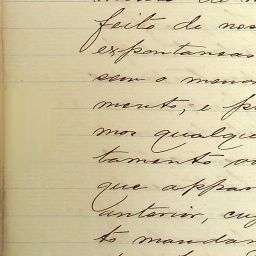 feito de nos
expontaneas
sem o menor
mento, e p
mos qualque
tamento ou
que appar
anterior, cu
to mandar